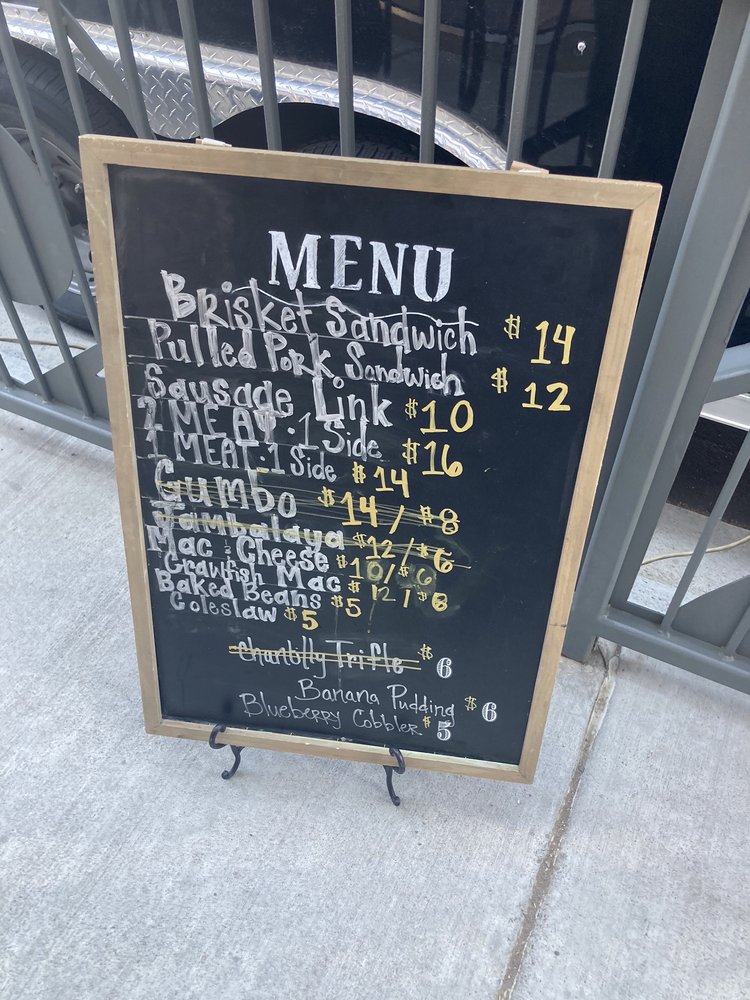 MENU
Brisket Sandwich $14
Pulled Pork Sandwich $12
Sausage Link $10
2 MEAT · 1 Side $16
1 MEAT · 1 Side $14
Gumbo $14/$8
Jambalaya $12/$6
Mac & Cheese $10/$6
Crawfish Mac $12/$8
Baked Beans $5
Coleslaw $5
Chantilly Trifle $6
Banana Pudding $6
Blueberry Cobbler $5